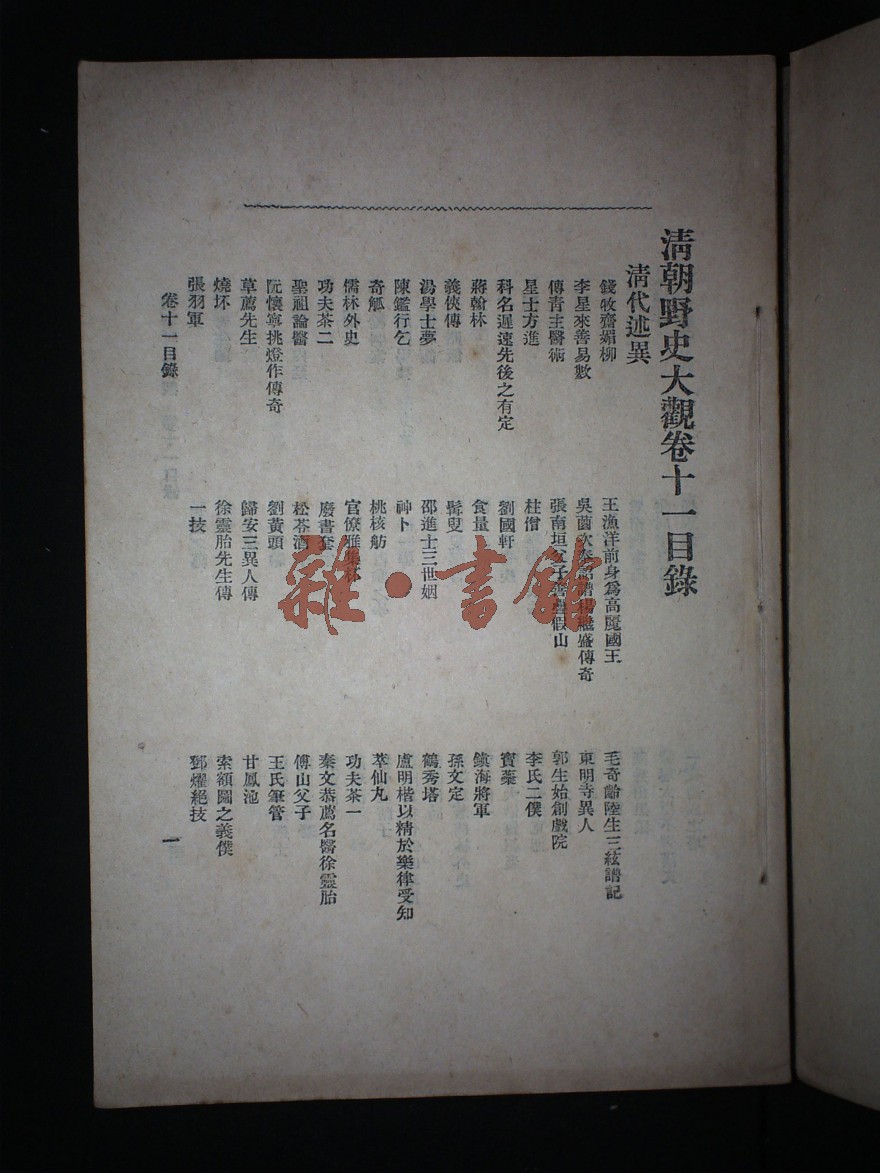 清朝野史大觀卷十一目錄
清代述異
錢牧齋媚柳
王漁洋前身爲高麗國王
毛奇齡陸生三絃譜記
李星來善易數
吳薗次奉詔譜楊繼盛傳奇
東明寺異人
傅青主醫術
張南垣父子善疊假山
郭生始創戲院
星士方進
柱僧
李氏二僕
科名遲速先後之有定
劉國軒
寶藥
蔣翰林
食量
鎮海將軍
義俠傳
髯叟
孫文定
湯學士夢
邵進士三世姻
鶴秀塔
陳鑑行乞
神卜
盧明楷以精於樂律受知
奇觚
桃核舫
萃仙丸
儒林外史
官僚雅集杯
功夫茶一
功夫茶二
廢書套
秦文恭薦名醫徐靈胎
聖祖論醫
松苓酒
傅山父子
阮懷寧挑燈作傳奇
劉黃頭
王氏筆管
草薦先生
歸安三異人傳
甘鳳池
燒坏
徐靈胎先生傳
索額圖之義僕
張羽軍
一技
鄧燿絕技
卷十一目錄
一
雜·書館